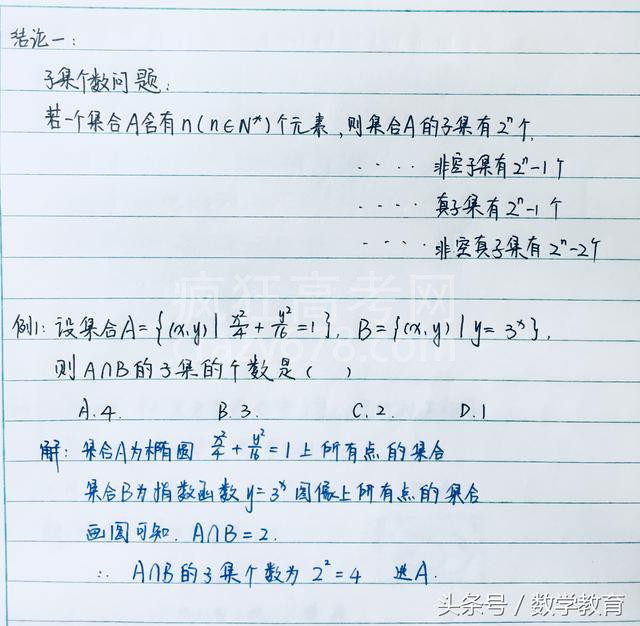 结论一:
子集个数问题:
若一个集合A含有n(n∈N*)个元素,则集合A的子集有2ⁿ个,
····非空子集有2ⁿ-1个
····真子集有2ⁿ-1个
····非空真子集有2ⁿ-2个
疯狂高考网
例1:设集合A={(x,y)|x²/4+y²/16=1}, B={(x,y)|y=3ˣ},
则A∩B的子集的个数是( )
A.4. B.3. C.2. D.1
解:集合A为椭圆 x²/4+y²/16=1上所有点的集合
集合B为指数函数y=3ˣ图像上所有点的集合
画图可知, A∩B=2.
∴ A∩B的子集个数为 2²=4 选A.
头条号 / 数学教育